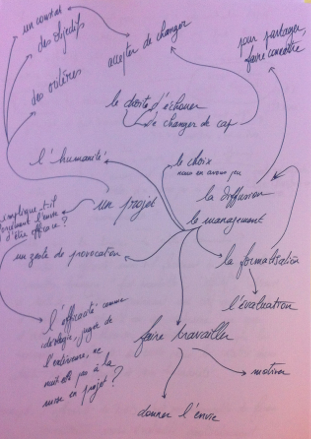 un constat
des objectifs
des critères
accepter de changer
pour partager,
faire connaître
le droit d'échouer
de changer de cap
l'humanité
le choix
nous en avons peu
un projet
la diffusion
le management
implique-t-il
d'être efficace ?
un geste de provocation
la formalisation
l'évaluation
l'efficacité comme
idéologie, jugée de
l'extérieur, ne
nuit-elle pas à la
mise en projet ?
faire travailler
motiver
donner l'envie